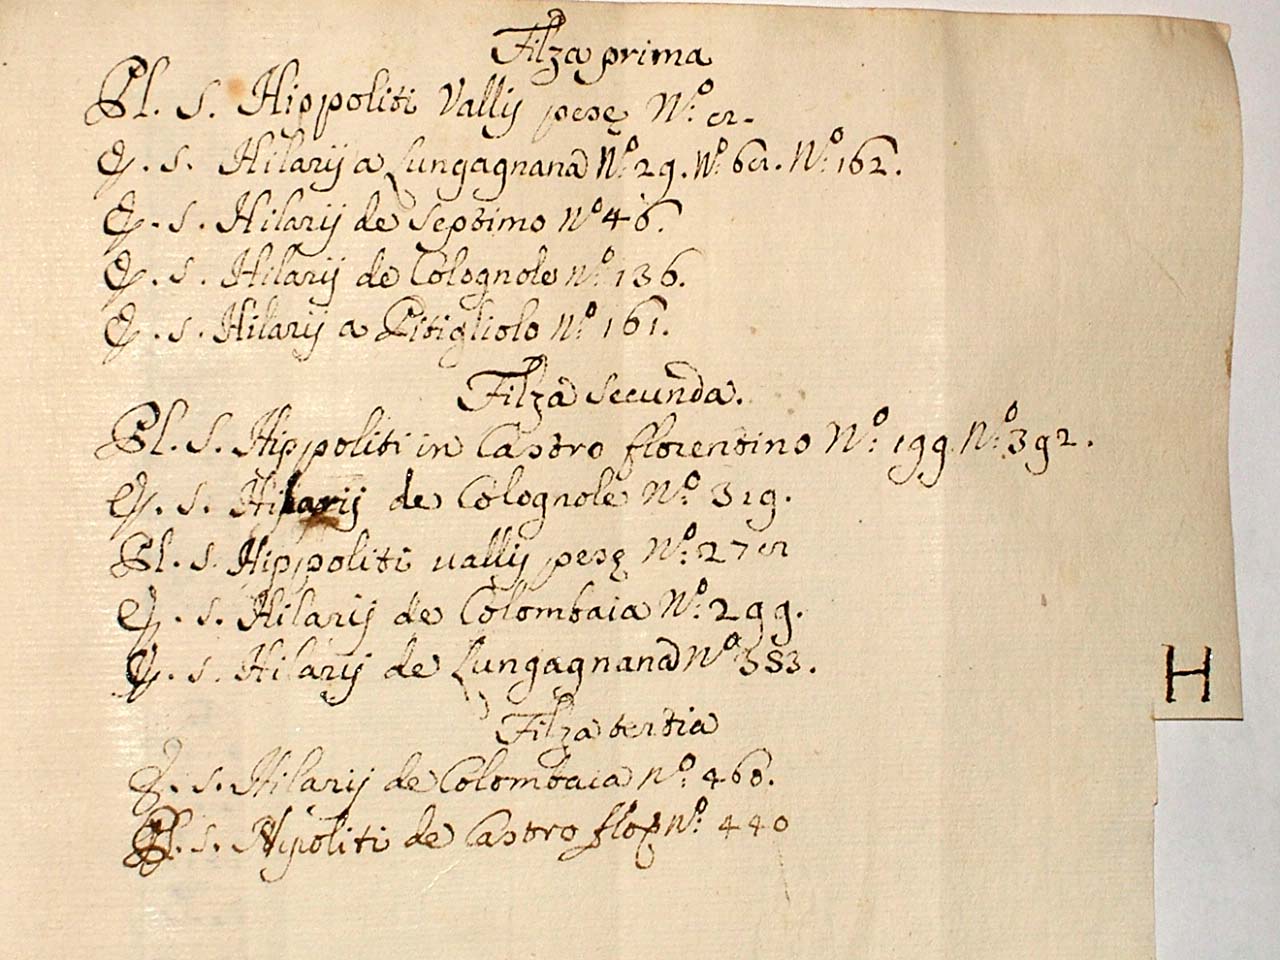 Filza prima
Pl. S. Hippoliti Vallis pesę N.º
E. S. Hilarij a Lungagnana N.º 29. N.º N.º 162.
E. S. Hilarij de Septimo Nº 46.
E. S. Hilarij de Colognole nº 136.
E. S. Hilarij a Pitigliolo Nº 161.
Filza Secunda.
Pl. S. Hippoliti in Castro florentino Nº: 199. Nº: 392.
E. S. Hilarij de Colognole Nº. 319.
Pl. S. Hippoliti vallis pesę Nº:
E. S. Hilarij de Colombaia Nº. 299.
E. S. Hilarij de Lungagnana Nº 353.
H
Filza tertia
E. S. Hilarij de Colombaia nº. 460.
Pl. S. Hipoliti de Castro nº. 440